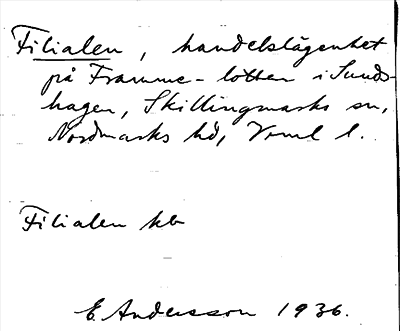 Filialen, handelslägenhet
på Framme-lotten i Sunds-
hagen, Skillingmarks sn,
Nordmarks hd, Vrml l.
Filialen hb
E. Andersson 1936.